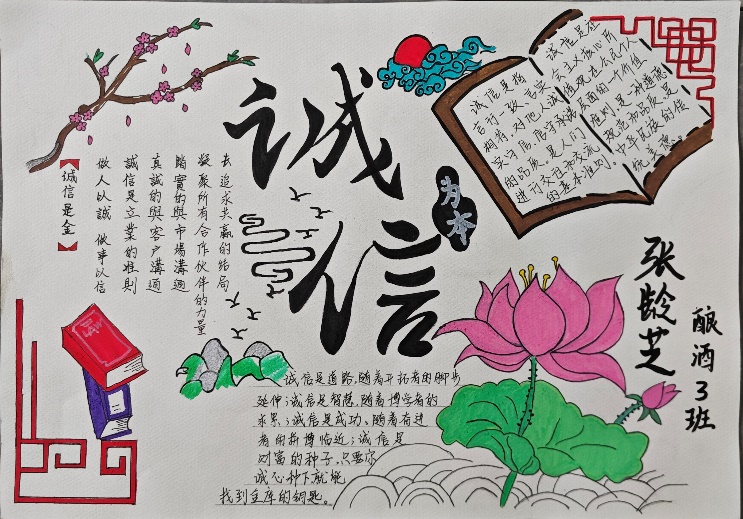 诚信
为本
【诚信是金】
做人以誠 做事以信
誠信是立業的准則
真誠的與客户溝通
踏實的與市場溝通
凝聚所有合作伙伴的力量
去追求共赢的结局
诚信是指
言行一致、言实
相符、对他人诚
实守信、恪守承诺
的品质。是人们
进行交往和交流
的基本准则。
诚信是社
会主义核心所
值观在公民个人
层面的一个价值
准则是一种道德
规范和品质,是
中华民族的传
统美德。
LAW
诚信是道路,随着开拓者的脚步
延伸;诚信是智慧,随着博学者的
求累;诚信是成功、随着有进
者的拼搏临近;诚信是
财富的种子,只要你
诚心种下就能
找到金库的钥匙。
张龄芝
酿酒3班